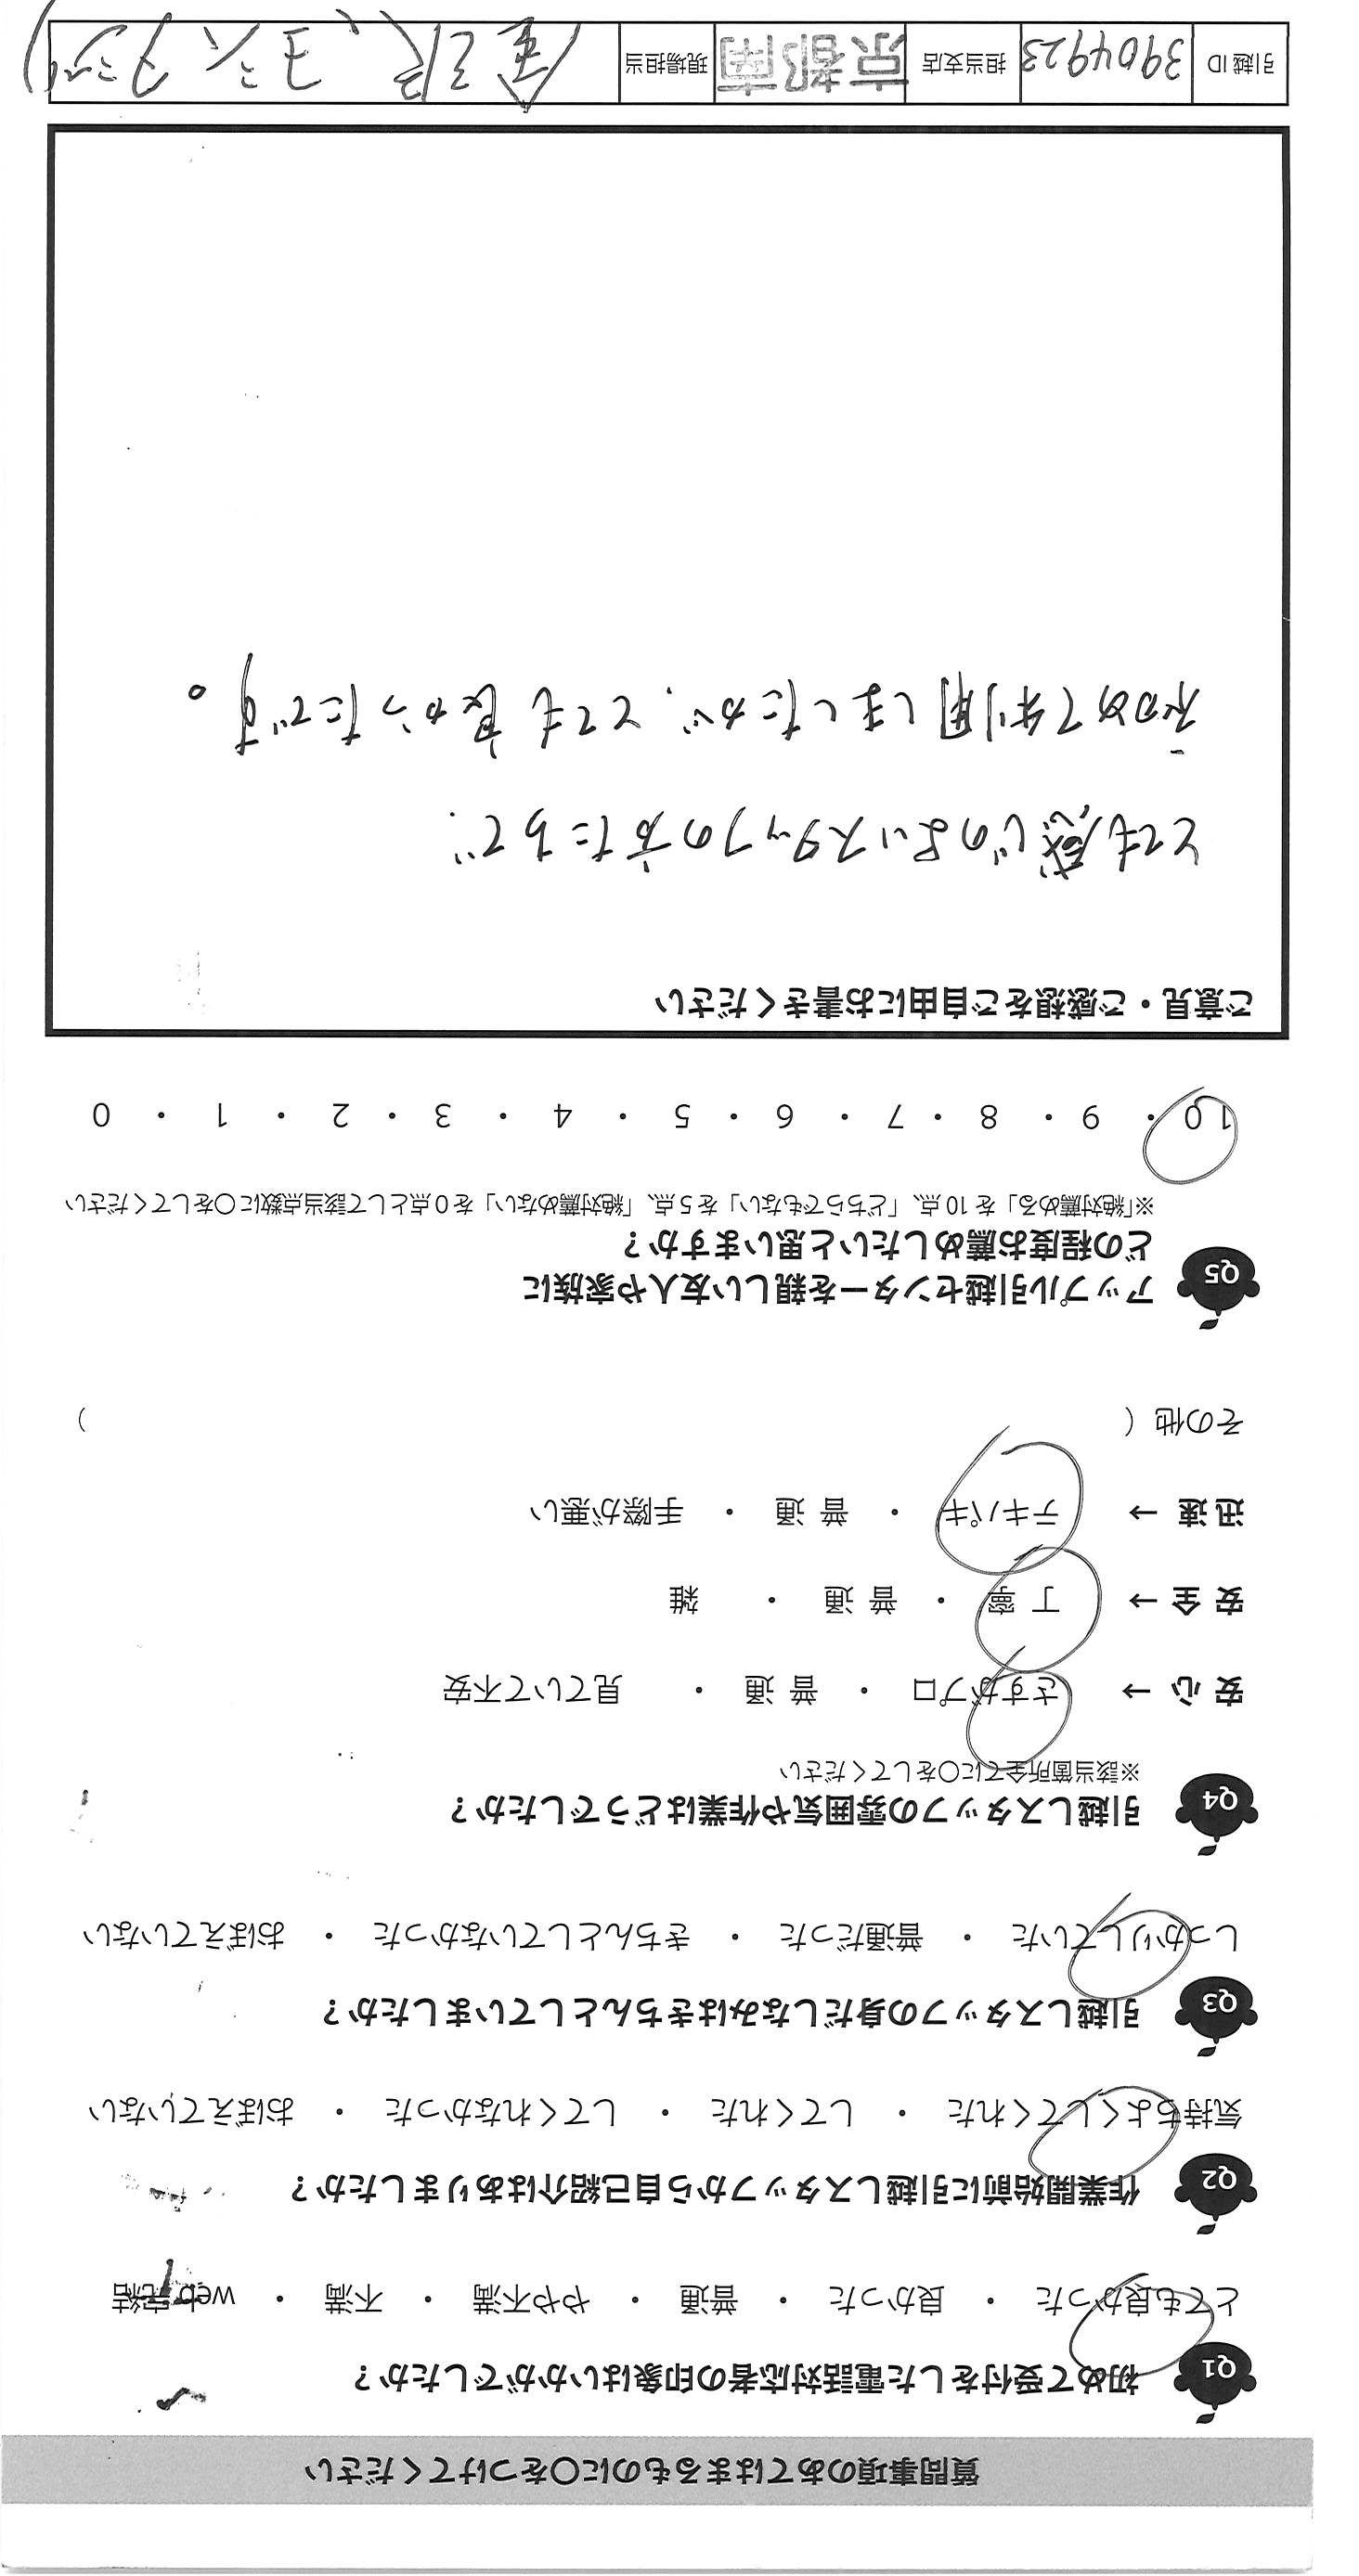 質問事項のあてはまるものに〇をつけてください
Q1 初めて受付をした電話対応者の印象はいかがでしたか？
とても良かった ・ 良かった ・ 普通 ・ やや不満 ・ 不満 ・ web完結
Q2 作業開始前に引越しスタッフから自己紹介はありましたか？
気持ちよくしてくれた ・ してくれた ・ してくれなかった ・ おぼえていない
Q3 引越しスタッフの身だしなみはきちんとしていましたか？
しっかりしていた ・ 普通だった ・ きちんとしていなかった ・ おぼえていない
Q4 引越しスタッフの雰囲気や作業はどうでしたか？
※該当箇所全てに〇をしてください
安心 → さすがプロ ・ 普通 ・ 見ていて不安
安全 → 丁寧 ・ 普通 ・ 雑
迅速 → テキパキ ・ 普通 ・ 手際が悪い
その他（ ）
Q5 アップル引越センターを親しい友人や家族に
どの程度お薦めしたいと思いますか？
※「絶対薦める」を 10 点、「どちらでもない」を 5 点、「絶対薦めない」を 0 点として該当点数に〇をしてください
10 ・ 9 ・ 8 ・ 7 ・ 6 ・ 5 ・ 4 ・ 3 ・ 2 ・ 1 ・ 0
ご意見・ご感想をご自由にお書きください
とても感じのよいスタッフの方たちで、
初めて利用しましたが、とても良かったです。
引越ID 3904923 担当支店 京都南 現場担当